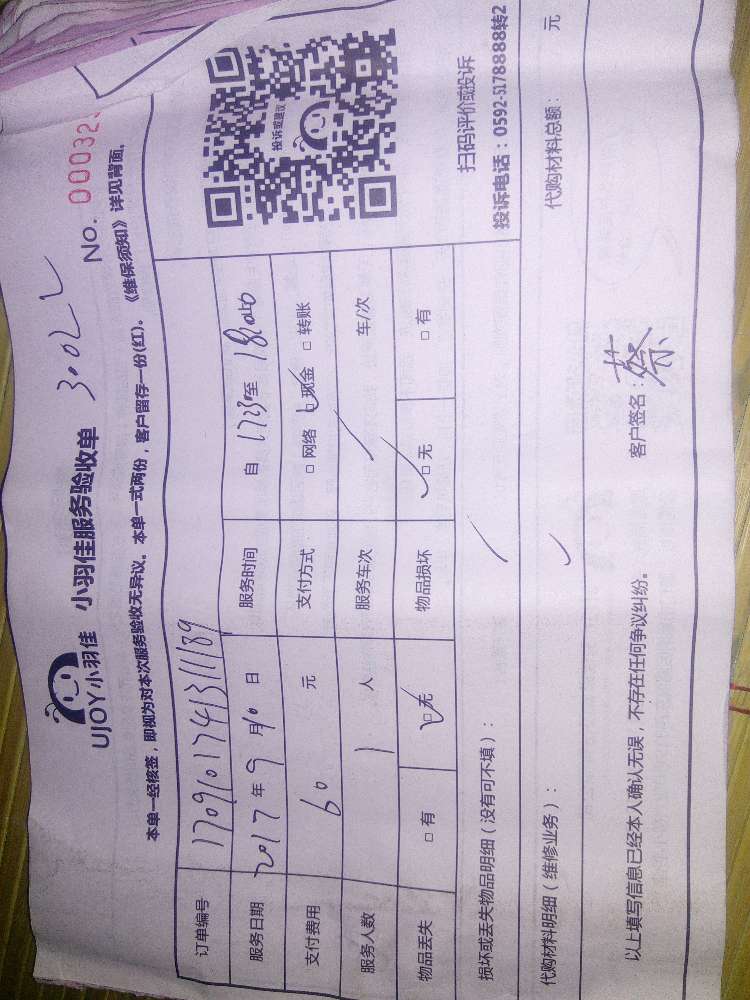 UJOY小羽佳 小羽佳服务验收单
No. 00032
本单一经核签，即视为对本次服务验收无异议。本单一式两份，客户留存一份(红)。《维保须知》详见背面。
订单编号
服务日期 2017 年 9 月 10 日 服务时间 自 1723 至
支付费用 60 元 支付方式 □ 网络 □ 现金 □ 转账
服务人数 1 人 服务车次 / 车/次
物品丢失 □ 有 □ 无 物品损坏 □ 无 □ 有
投诉或建议
扫码评价或投诉
损坏或丢失物品明细（没有可不填）： /
投诉电话：0592-5178888转2
代购材料明细（维修业务）：
代购材料总额： 元
以上填写信息已经本人确认无误，不存在任何争议纠纷。 客户签名：蔡